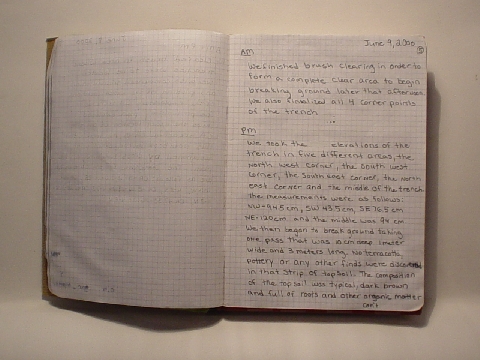 June 9, 2000
AM
We finished brush clearing in order to
form a complete clear area to begin
breaking ground later that afternoon.
We also finalized all 4 corner points
of the trench
PM
We took the elevations of the
trench in five different areas, the
North west corner, the south west
corner, the south east corner, the north
east corner and the middle of the trench.
The measurements were as follows:
NW-94.5cm, SW 43.5cm, SE 76.5 cm
NE-120cm and the middle was 94 cm
We then began to break ground taking
one pass that was 10cm deep 1 meter
wide and 3 meters long. No terracotta,
pottery or any other finds were discovered
in that strip of topsoil. The composition
of the topsoil was typical, dark brown
and full of roots and other organic matter
con't